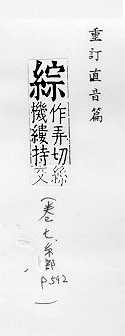 重訂直音篇
綜
作弄切
機縷持
絲
交
(卷七．糸部
P.592
)